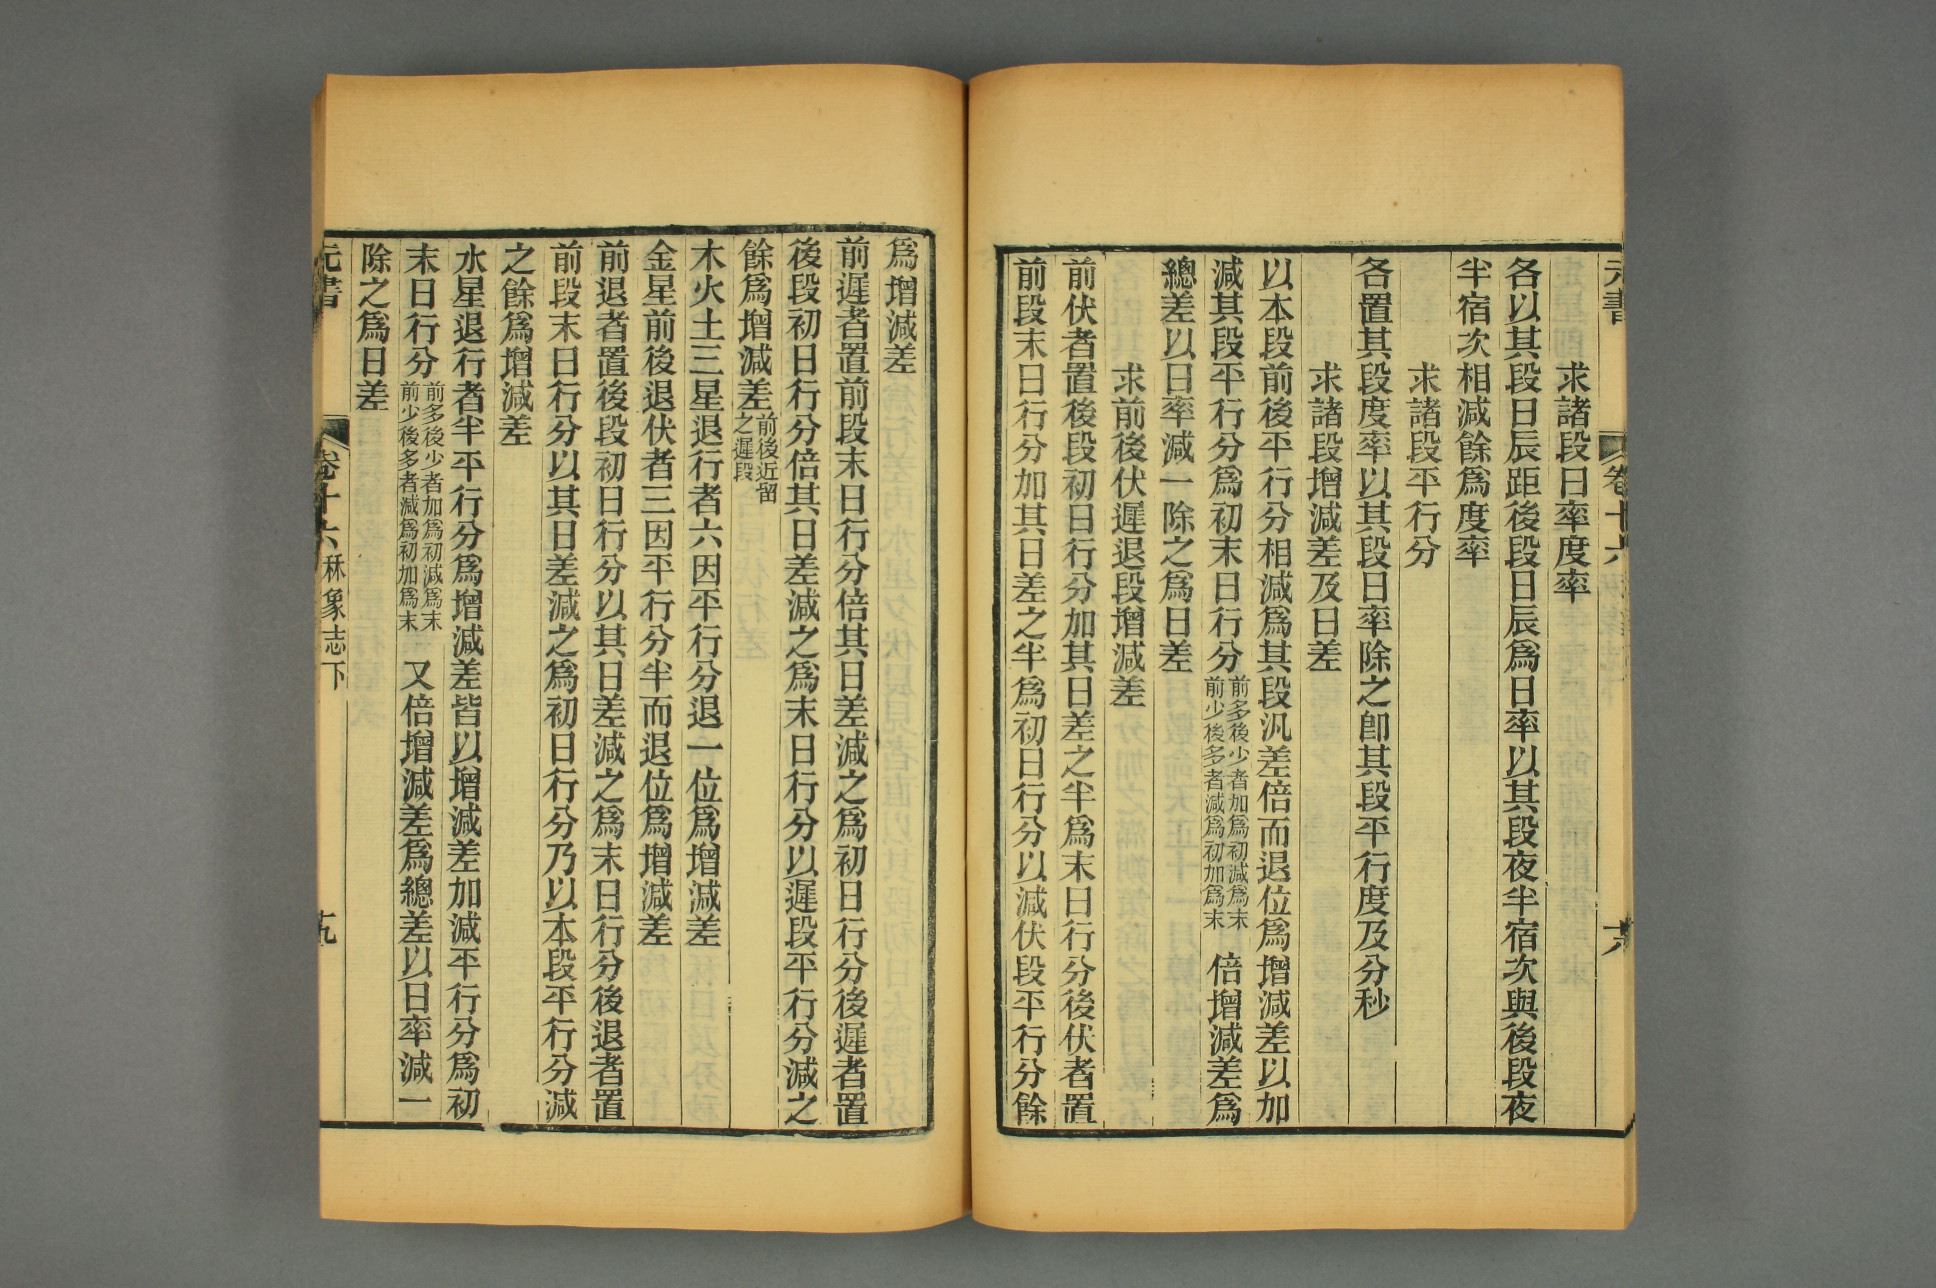 元書
卷十六
六
求諸段日率度率
各以其段日辰距後段日辰爲日率以其段夜半宿次與後段夜
半宿次相減餘爲度率
求諸段平行分
各置其段度率以其段日率除之卽其段平行度及分秒
求諸段增減差及日差
以本段前後平行分相減爲其段汎差倍而退位爲增減差以加
減其段平行分爲初末日行分前多後少者加爲初減爲末前少後多者減爲初加爲末倍增減差爲
總差以日率減一除之爲日差
求前後伏遲退段增減差
前伏者置後段初日行分加其日差之半爲末日行分後伏者置
前段末日行分加其日差之半爲初日行分以減伏段平行分餘
爲增減差
前遲者置前段末日行分倍其日差減之爲初日行分後遲者置
後段初日行分倍其日差減之爲末日行分以遲段平行分減之
餘爲增減差前後近留之遲段
木火土三星退行者六因平行分退一位爲增減差
金星前後退伏者三因平行分半而退位爲增減差
前退者置後段初日行分以其日差減之爲末日行分後退者置
前段末日行分以其日差減之爲初日行分乃以本段平行分減
之餘爲增減差
水星退行者半平行分爲增減差皆以增減差加減平行分爲初
末日行分前多後少者加爲初減爲末前少後多者減爲初加爲末又倍增減差爲總差以日率減一
除之爲日差
元書
卷十六
秝象志下
九